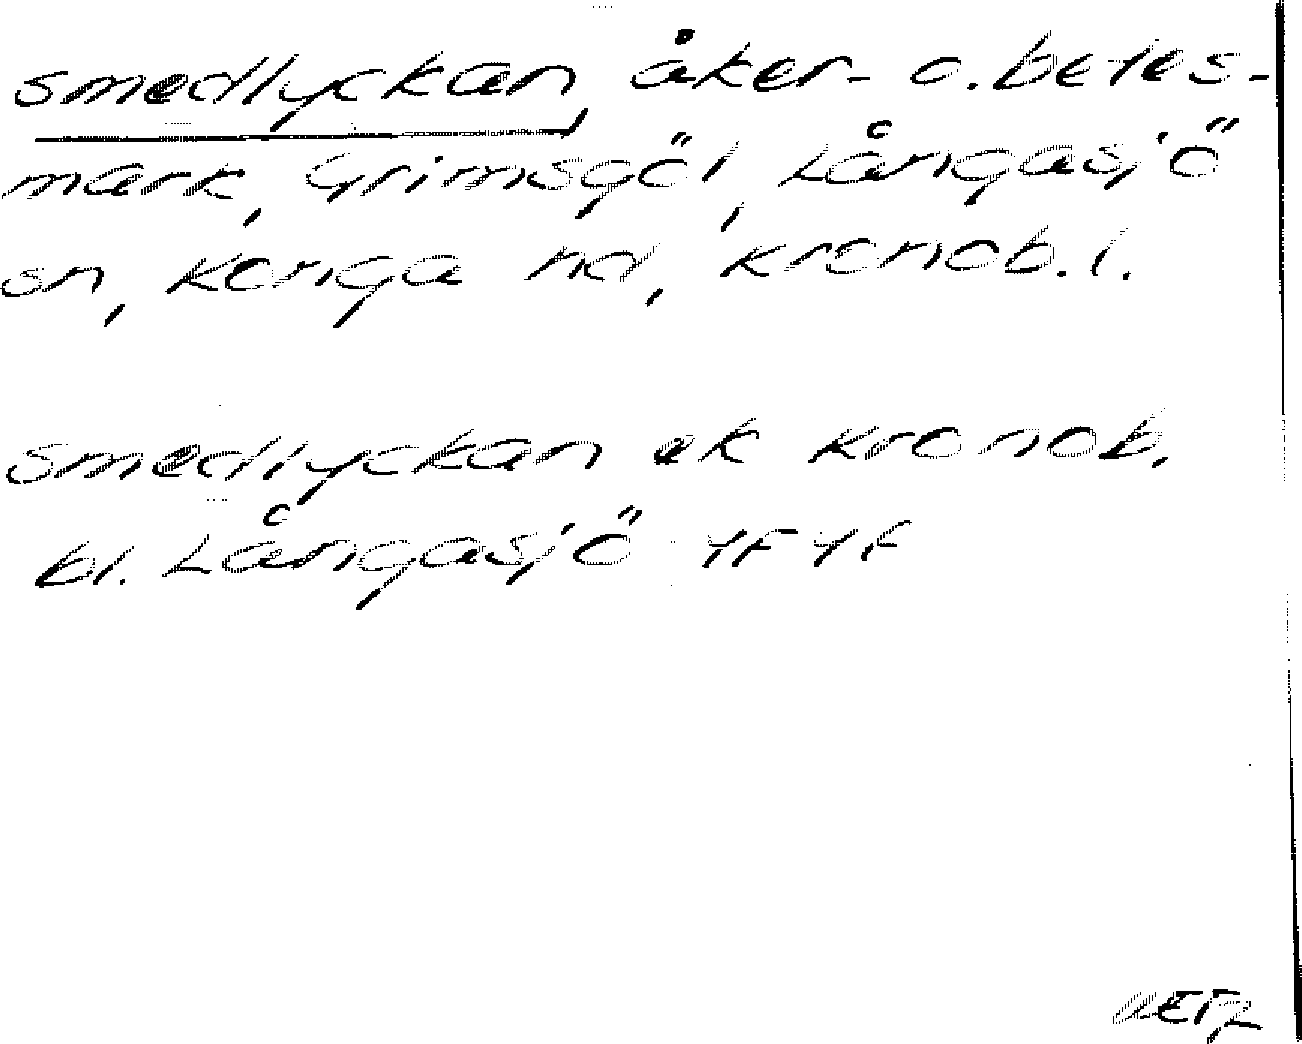 smedlyckan, åker- o. betes-
mark, Grimsgöl, Långasjö
sn, Konga hd, Kronob. l.
smedlyckan ek Kronob.
bl. Långasjö